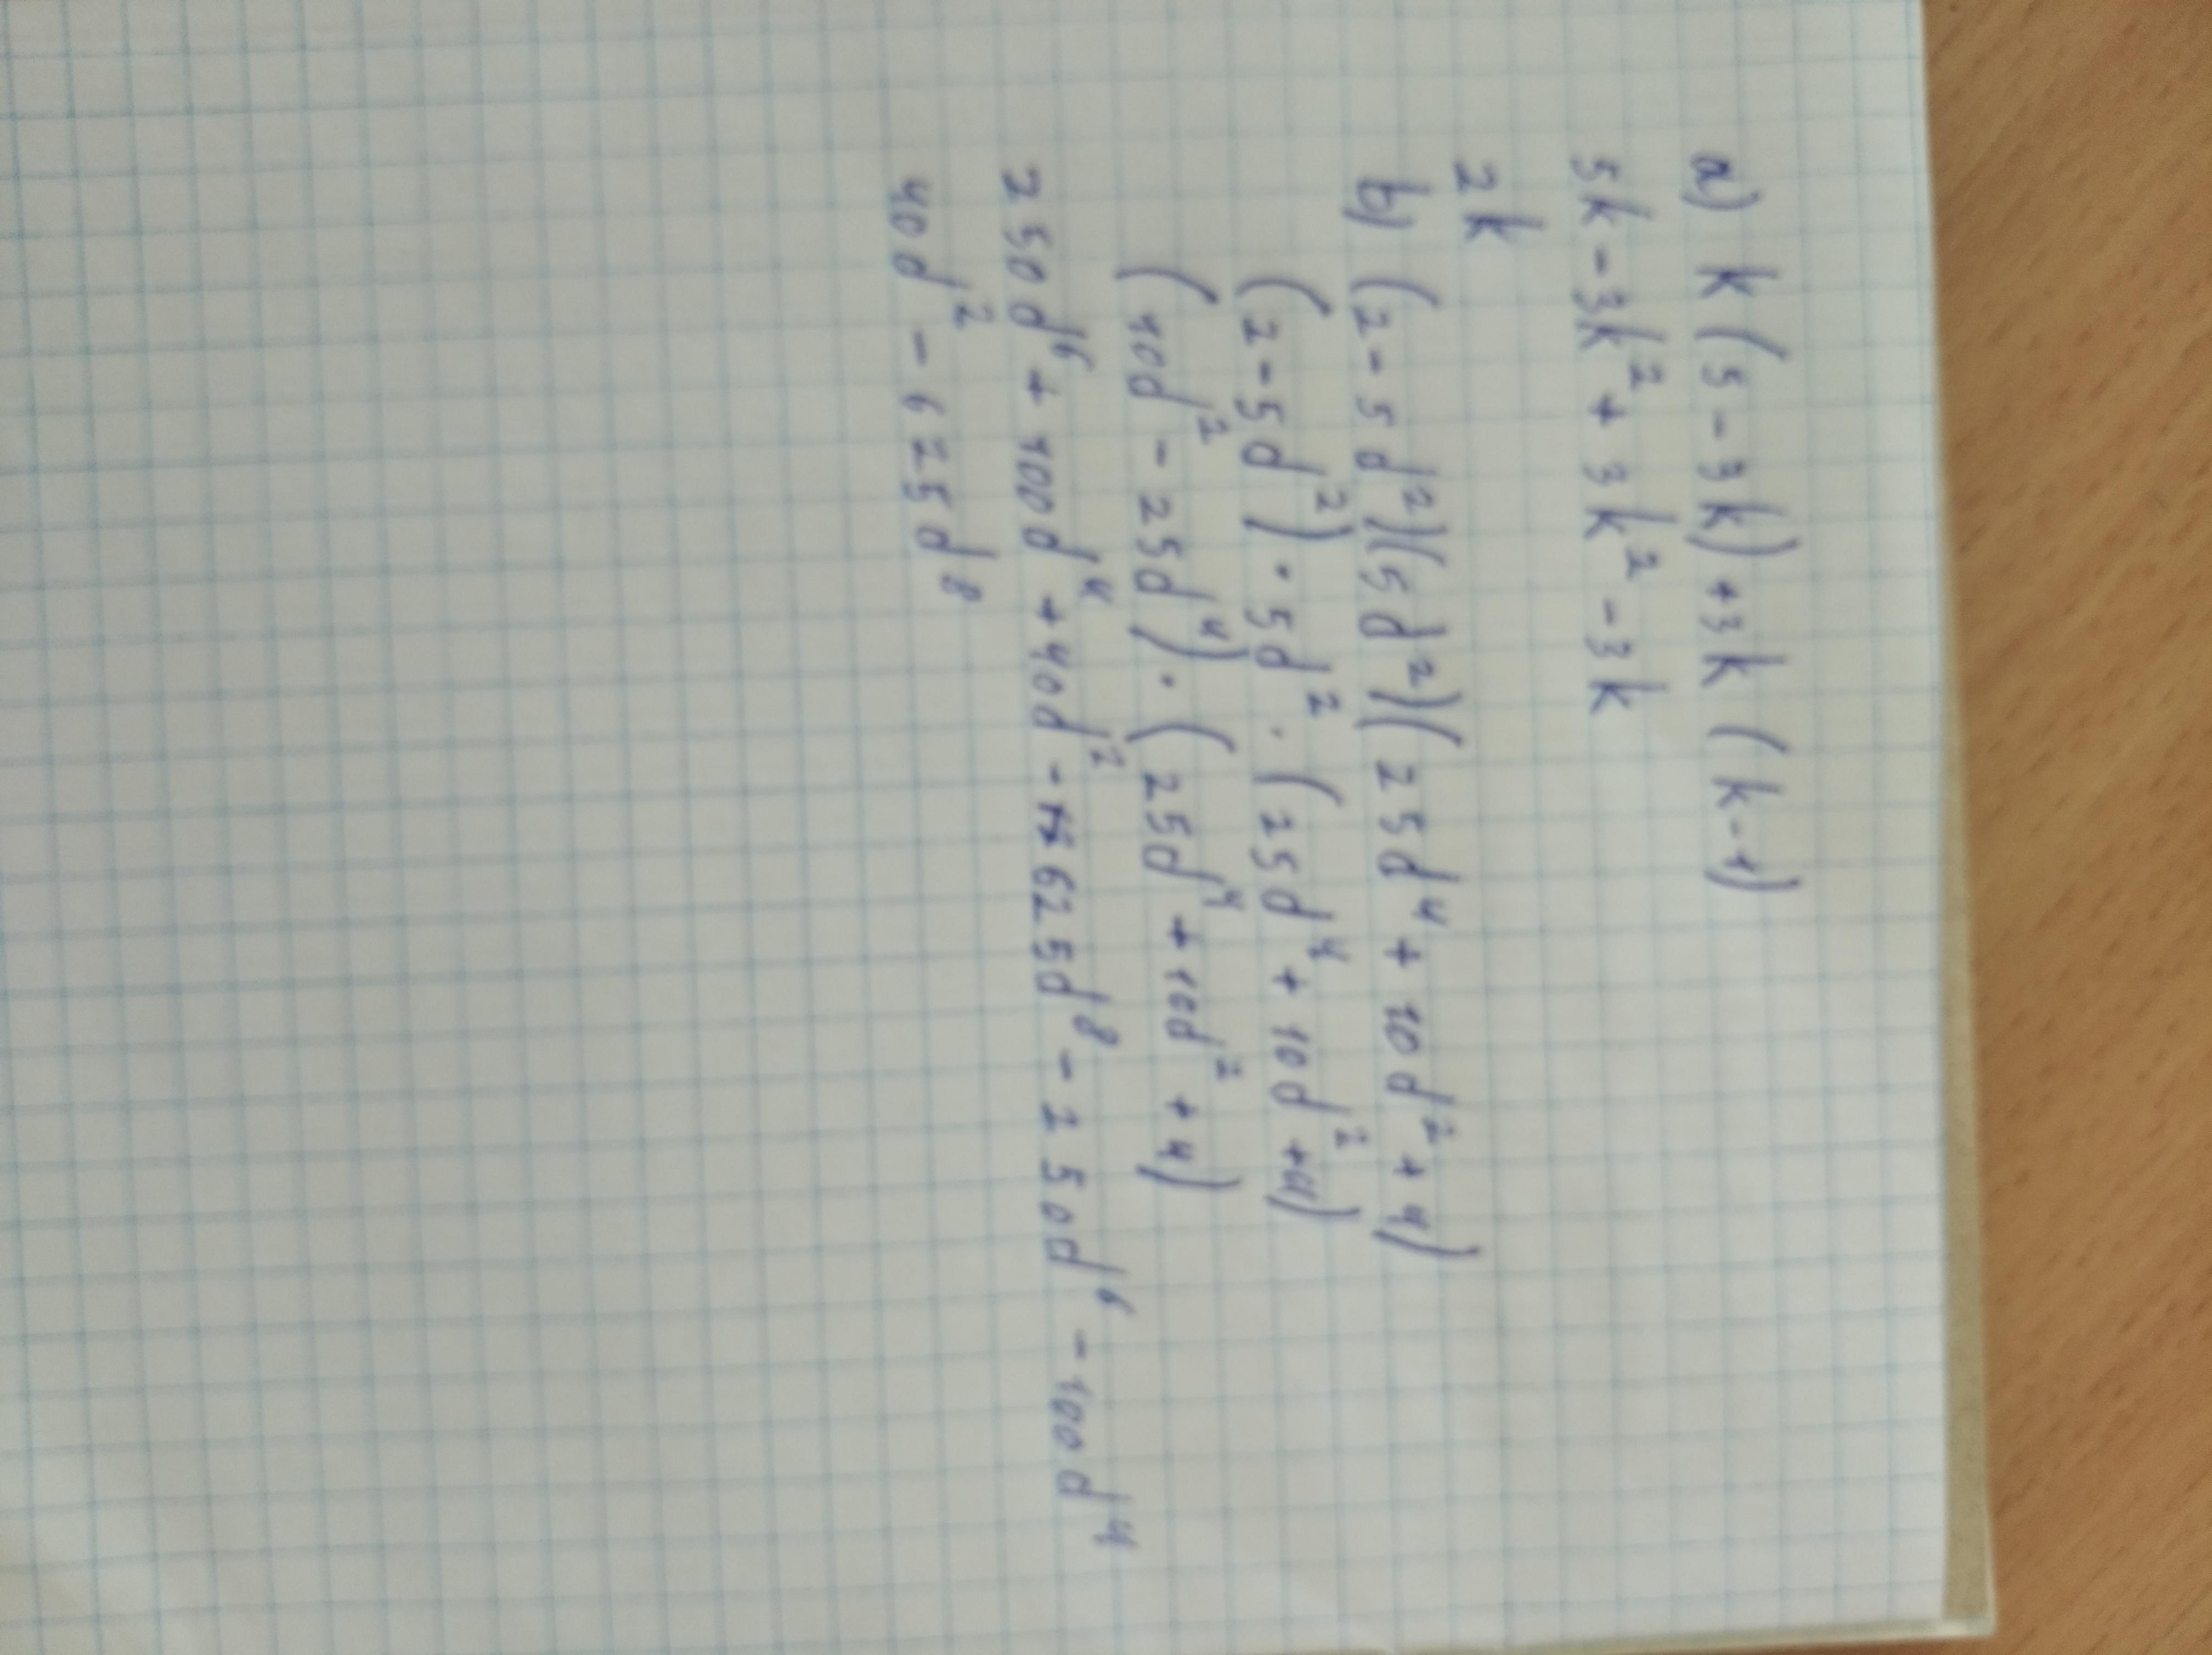 a) k(5-3k)+3k(k-1)
5k-3k²+3k²-3k
2k
b) (2-5d²)(5d²)(25d⁴+10d²+4)
(2-5d²)·5d²·(25d⁴+10d²+4)
(10d²-25d⁴)·(25d⁴+10d²+4)
250d⁶+100d⁴+40d²-625d⁸-250d⁶-100d⁴
40d²-625d⁸